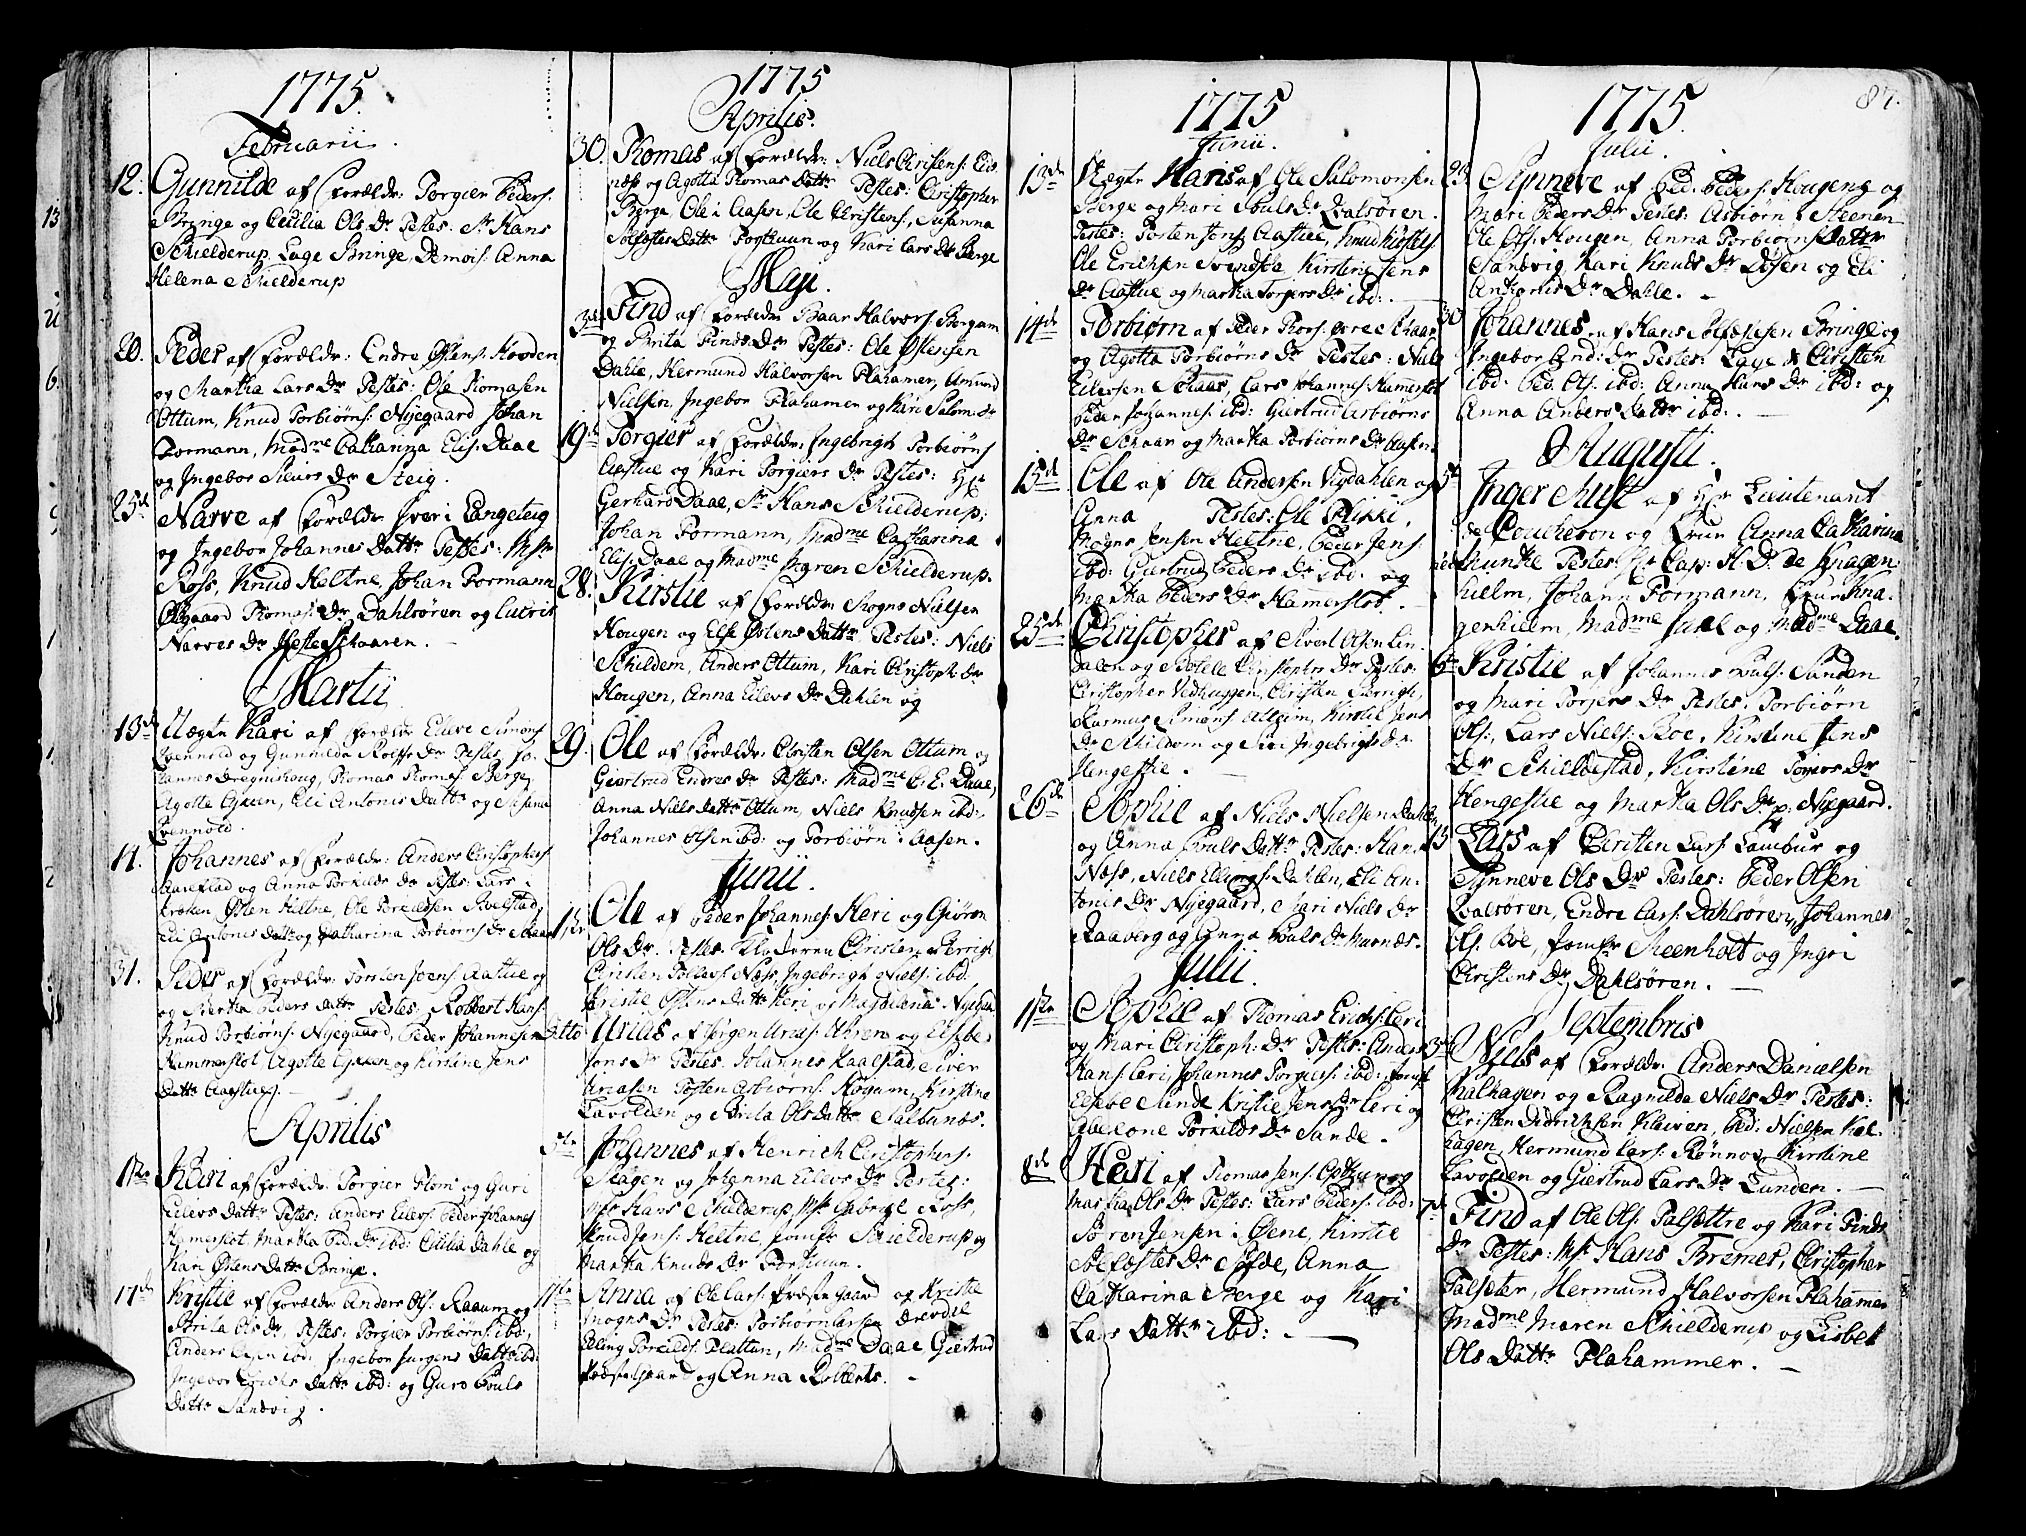 1775.
Februarii.
12. Gunnilde af Forældr: Torgier Peders:
Bringe og Cecilia Ols Dr Testes: Sr Hans
Schielderup, Lage Bringe, Demois: Anna
Helena Schielderup
20. Peder af Forældr: Endre Østens: Hovden
og Martha Lars Dr Testes: Ole Thomasen
Ottum, Knud Torbiørns: Nyegaard Johan
Formann, Madme Catharina Elis: Daae
og Ingebor Siurs Dr Steig.
25de Narve af Forældr Iver i Langeteig
og Ingebor Johannes Dattr Testes: Msr
Ross, Knud Heltne, Johan Formann
Thomas: Dr Dahlsøren og Lucris
Narves Dr Hestethaaren.
Martii
13de Uægte Kari af Forældr Eleve Simons:
Evennold og Gunnilda Rolfs Dr Testes Jo-
hannes Dregnishoug, Thomas Thomes: Berge,
Agotte Eleen, Eli Antonis Dattr og Susena
Evennold.
11. Johannes af Forældr: Anders Christophers:
og Anna Torkilds Dr Testes: Lars i
Kroken, Østen Heltne, Ole
Eli Antonis Dattr og Catharina Torbiørns Dr
31. Peder af Forældr: Torsten Joens: Aastue og
og Martha Peders Dattr Testes: Robbert Hans:
Knud Torbiørns: Nyegaard, Peder Johannesen
Hammerslot, Agotte Eleen og Kirstine Jens
Dattr Aastue.
Aprilis
1ste Kari af Forældr Torgier Flom og Guri
Eilevs Dattr Testes: Anders Eilevs: Peder Johannes
Hamerslot, Martha Ped: Dr ibd: Cicilia Dahle og
Kari Østens Dattr Bringe.
17de Kristie af Forældr Anders Ols: Raaum og
Brita Ols Dr, Testes: Torgier Torbiørns: ibd,
Anders Olsen ibd: Ingebor Jurgens Dattr ibd:
Ingebor Erichs Dattr ibd: og Guro Pouls
Dattr Sandvig.
1775
Aprilis.
30. Thomas af Forældr: Niels Christens: Eid-
næs og Agotta Thomas Dattr Testes: Christopher
Berge, Ole i Aasen, Ole Christens, Susanna
Solfestes Dattr Fogthuun og Kari Lars Dr Berge
Maji.
3de Find af Forældr Baar Halvors: Borgum
og Brita Finds Dr Testes: Ole Østensen
Dahle, Hermund Halvorsen Plahamer, Amund
Nielsen, Ingebor Plahamer og Kari Salom: dr
19de Torgier af Forældr: Ingebrigt Torbiørns
Aastue og Kari Torgiers Dr Testes: Hr
Gerhard Daae, Sr Hans Schielderup,
Johan Formann, Madme Catharina
Elis: Daae og Madme Maren Schielderup.
28. Kirstie af Forældr Mogns Nielsen
Hougen og Else Østens Dattr Testes: Niels
Schildem, Anders Ottum, Kari Christoph: Dr
Hougen, Anna Eilevs Dr Dahlen og
29. Ole af Forældr Christen Olsen Ottum og
Giertrud Endres Dr Testes: Madme C: E: Daae,
Anna Niels Dattr Ottum, Niels Knudsen ibd:
Johannes Olsen ibd: og Torbiørn i Aasen.
Junii.
1ste Ole af Peder Johannes: Heri og Giøron
Ols Dr. Testes: Christen
Christen Tollevs: Næss, Ingebrigt Niels: ibd:
Kristie Østens Dattr Heri og Magdalena Nyegaar
Ditto Urias af Jørgen Urias: Ahren og Elsebe
Jons Dr Testes: Johannes Kaalstad, Siver
Uriasen Testen Torbiørns: Røgum, Kirstine
Lavolden og Brita Ols Dattr Saltunæs.
5te Johannes af Henrich Christophers:
Skagen og Johanna Eilevs Dr Testes:
Msr Hans Schielderup, Msr Gabriel Ross,
Knud Jens: Heltne, Jomfr Schielderup og
Martha Knuds Dr Fogthuun.
11te Anna af Ole Lars: Præstegaard og Kristie
Mogns Dr Testes: Torbiørn Larsen Drevdie
Elling Torkilds: Flattun, Madme Daae Giertrud
Præstegaard og Anna Robberts.
1775
Junii.
13de Uægte Haris af Ole Salomonsen
Berge og Mari Pouls Dr Qvalsøren.
Testes: Torsten Jens: Aastue, Knud
Ole Erichsen Svendsøe, Kirstine Jens
Dr Aastue og Martha Torgers Dr ibd:
14de Torbiørn af Peder Thors:
og Agotta Torbiørns Dr Testes: Niels
Eilevsen Schaar, Lars Johannes: Hamerslot
Peder Johannes: ibd: Giertrud Torbiørns
Dr Schaar og Martha Torbiørns Dr Aasen.
15de Ole af Ole Andersen Vigdahlen og
Anna Testes: Ole Flikki,
Mogns Jensen Heltne, Peder Jens:
ibd: Giertrud Peders Dr ibd: og
Martha Peders Dr Hamerslot.
25de Christopher af Sivert Olsen Lin-
dalen og Bothele Christophr Dr Testes:
Christopher Vedhuggen, Christen
Rasmus Simons: Kirstie Jens
Dr Skildom og Siri Ingebrigts Dr
Hengestie.
26de Sophie af Niels Nielsen Dahlen
og Anna Pouls Dattr Testes: Hans
Næss, Niels Ellings: Dahlen, Eli An-
tonis Dr Nyegaard, Mari Niels Dr
Raaberg og Anna Pouls Dr Marnæs.
Julii.
11te Sophie af Thomas Erichs: Leri
og Mari Christoph: Dr Testes: Anders
Hans: Leri, Johannes Torgiers: ibd: Jomfr
Elsebe Munde Kristie Jens Dr Leri og
Torkilds Dr Sande.
8de Kari af Thomas Jens: og
Martha Ols Dr Testes: Lars Peders: ibd:
Søren Jensen i Øene, Kirstie
Solfestes Dr Solde, Anna
Catharina Berge og Kari
Lars Dattr ibd:
1775. 87.
Julii.
23. Synneve af Ped: Peders: Hougens og
Mari Peders Dr Testes: Asbiørn i Steenen
Ole Ols: Hougen, Anna Torbiørns Dattr
Sandvig, Kari Knuds Dr Døsen og Eli
Antonis Dr Dahle.
30 Johannes af Hans Solfestesen Bringe og
Ingebor And: Dr Testes: Lage & Christen
ibd: Ped: Ols: ibd: Anna Hans Dr ibd: og
Anna Anders Dattr ibd:
Augusti.
5te Inger Aust af Hr Lieutenant
de Coucheron og Frue Anna Catharina
Munthe Testes: Hr Cap: H: D: de Knagen-
hielm, Johan Formann, Frue Kna-
genhielm, Madme Juel og Madme Daae.
6te Kristie af Johannes Pouls: Sanden
og Mari Torjers Dr Testes: Torbiørn
Ols:, Lars Niels: Røe, Kirstine Jens
Dr Schieldestad, Kirstine Torjers Dr
Hengestie og Martha Ols Dr p: Nyegaard.
13 Lars af Christen Lars: Lambur og
Synneve Ols Dr Testes: Peder Olsen
Qvalsøren, Endre Lars: Dahlsøren, Johannes
Ols: Røe, Jomfr Steenholt og Ingri
Christens Dr Dahlsøren.
Septembris
3de Niels af Forældr: Anders Danielsen
Kalhagen og Ragnilda Niels Dr Testes:
Christen Didrichsen Kleiven, Ped: Nielsen Kal-
hagen, Hermund Lars: Rønnov, Kirstine
Lavolden og Giertrud Lars Dr Lunden.
7de Find af Ole Ols: Talsættre og Kari Finds
Dr Testes: Msr Hans Bremer, Christopher
Talseter, Hermund Halvorsen Plahammer
Madme Maren Schielderup og Lisbet
Ols Dattr Plahammer.